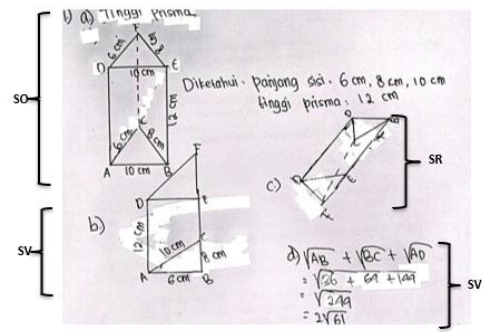 1) a) Tinggi Prisma
F
6 cm
8 cm
D
10 cm
E
12 cm
SO
C
6 cm
8 cm
A
10 cm
B
Diketahui : panjang sisi : 6 cm, 8 cm, 10 cm
tinggi prisma : 12 cm
c)
D
E
F
SR
b)
F
D
E
12 cm
10 cm
C
8 cm
A
6 cm
B
SV
d) √AB + √BC + √AD
= √36 + 64 + 144
= √244
= 2√61
SV